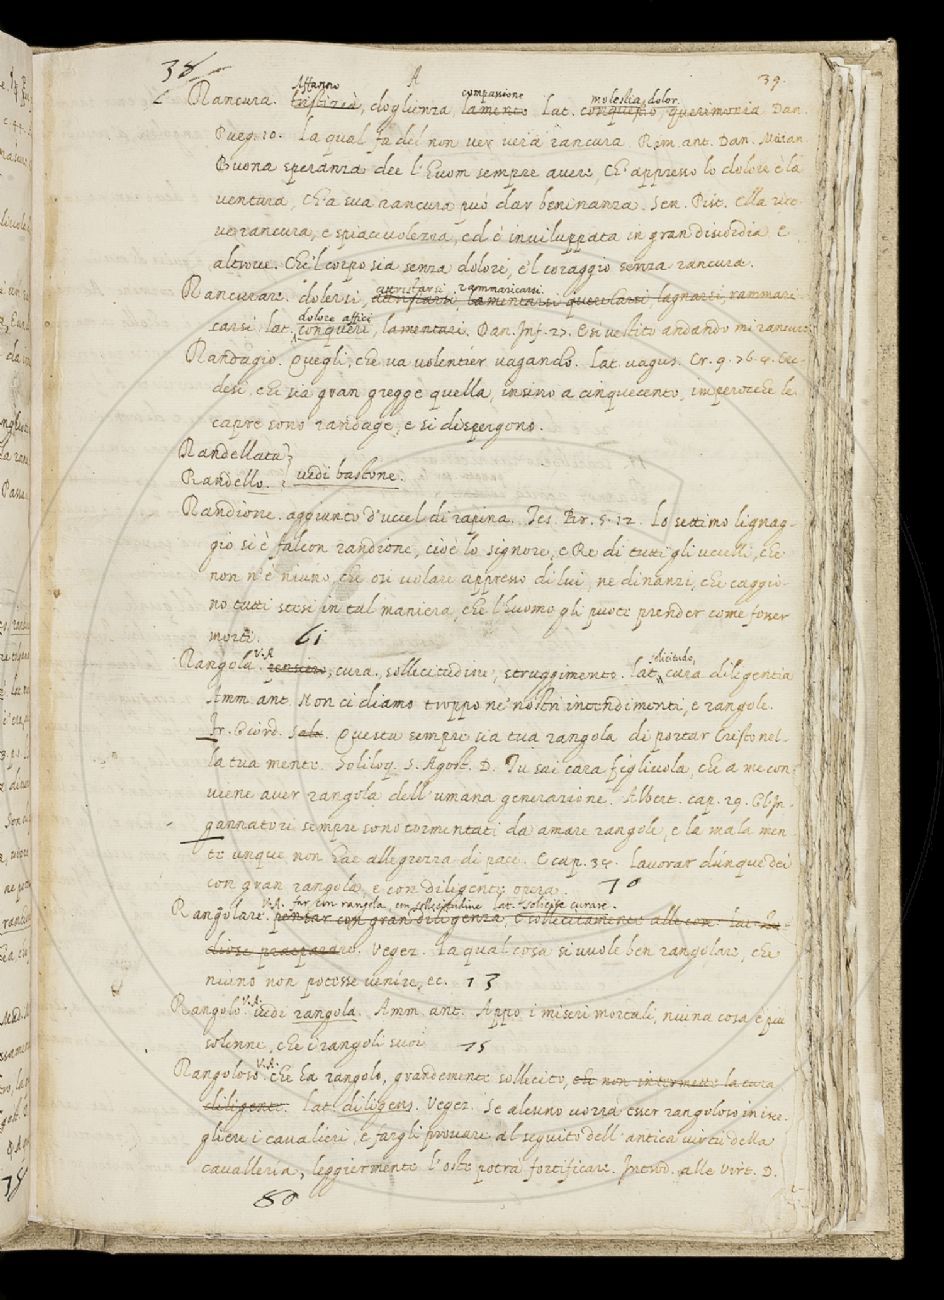 38 A 39.
Affanno compassione molestia, dolor.
Rancura. tristizia, doglienza, lamento lat. conquestio, querimonia Dan.
Purg. 10. La qual fa del non ver vera rancura. Rim. ant. Dan. Maian.
Buona speranza dee l'huom sempre avere, Ch'appresso lo dolore è la
ventura, Ch'a sua rancura può dar beninanza. Sen. Pist. Ella rice-
ve rancura, e spiacevolezza, ed è inviluppata in gran discordia e
altrove. Che'l corpo sia senza dolore, e'l coraggio senza rancura.
attristarsi, rammaricarsi.
Rancurare. dolersi, attristarsi, lamentarsi querelarsi lagnarsi, rammari-
dolore affici
carsi, lat. conqueri, lamentari. Dan. Inf. 27. E sì vestito andando mi rancuro.
Randagio. Quegli, che va volentier vagando. Lat. vagus. Cr. 9. 76. 4. Cre-
desi, che sia gran gregge quella, insino a cinquecento, imperocche le
capre sono randage, e si dispergono.
Randellata
Randello. vedi bastone.
Randione. aggiunto d'uccel di rapina. Tes. Br. 5. 12. Lo settimo lignag-
gio si è falcon randione, cioè lo signore, e Re di tutti gli uccelli, che
non n'è niuno, che osi volare appresso di lui, ne dinanzi, che caggio-
no tutti stesi in tal maniera, che l'huomo gli puote prender come foser
morti. 61
V.A. solicitudo,
Rangola. pensiero, cura, sollecitudine, struggimento. lat. cura diligentia
Amm. ant. Non ci diamo troppo ne' nostri intendimenti, e rangole.
Fr. Giord. Salv. Questa sempre sia tua rangola di portar Cristo nel-
la tua mente. Soliloq. S. Agost. D. Tu sai cara figliuola, che a me con-
viene aver rangola dell'umana generazione. Albert. cap. 29. Gl'In-
gannatori sempre sono tormentati da amare rangole, e la mala men-
te unque non hae allegrezza di pace. E cap. 38. Lavorar dunque dei
con gran rangola, e con diligente opera. 70
V.A. far con rangola, con sollecitudine lat. solicite curare.
Rangolare. pensar con gran diligenza, e sollecitamente alle cose. lat. stu-
diose praeparare. Vegez. La qual cosa si vuole ben rangolare, che
niuno non potesse venire, ec. 73
V.A.
Rangolo. vedi rangola. Amm. ant. Appo i miseri mortali, niuna cosa è più
solenne, che i rangoli suoi 75
V.A.
Rangoloso. che ha rangolo, grandemente sollecito, che non intermette la cura
diligente. lat. diligens. Vegez. Se alcuno vorrà esser rangoloso in isce-
gliere i cavalieri, e fargli provare al seguito dell'antica virtù della
cavalleria, leggiermente l'oste potrà fortificare. Introd. alle Virt. D.
80